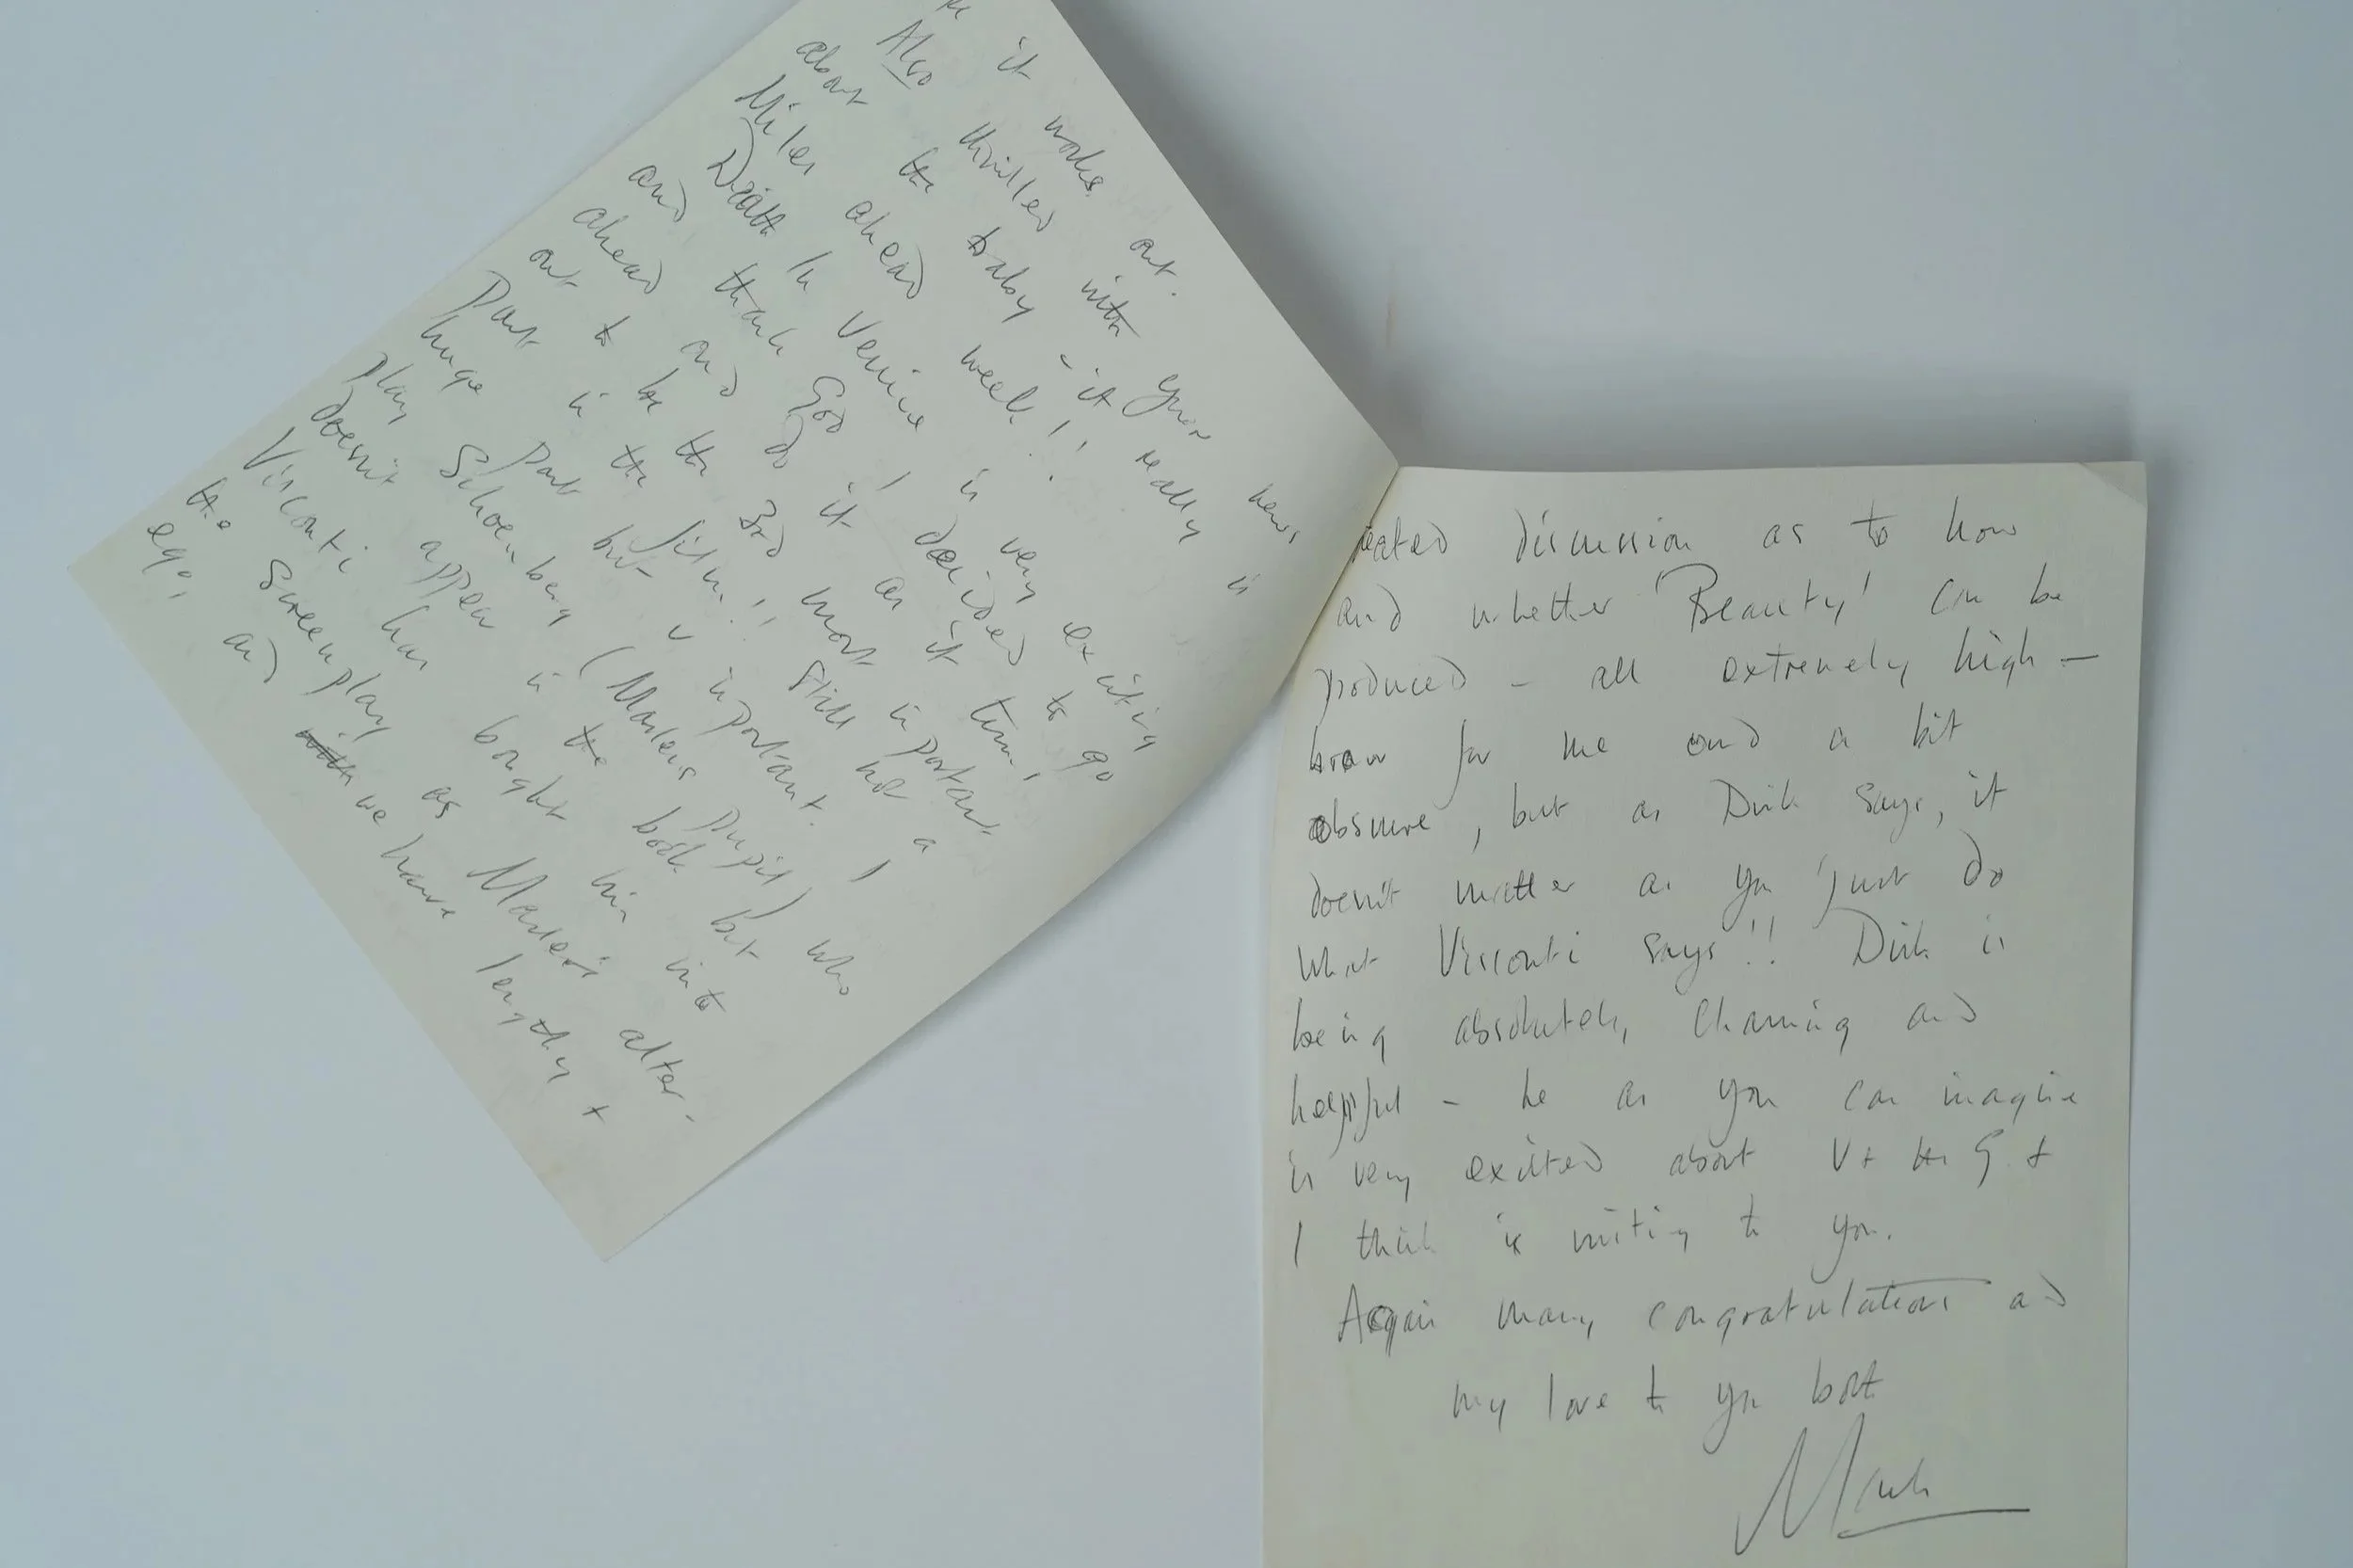 it works out.
Also thrilled with your news
about the baby - it really is
Miles ahead week!!
Death In Venice is very exciting
and thank God I decided to go
ahead and do it as it turns
out to be the 3rd most important
Part in the film!! Still not a
huge Part but v important. I
play Schoenberg (Mahlers Pupil) who
doesnt appear in the book but
Visconti has bought him into
the Screenplay as Mahler's alter-
ego, and with we have lengthy +
heated discussion as to how
and whether 'Beauty' can be
produced - all extremely high -
brow for me and a bit
obscure, but as Dirk says, it
doesn't matter as you just do
what Visconti says!! Dirk is
being absolutely charming and
helpful - he as you can imagine
is very excited about V + the G. +
I think is writing to you.
Again many congratulations and
my love to you both
Mark